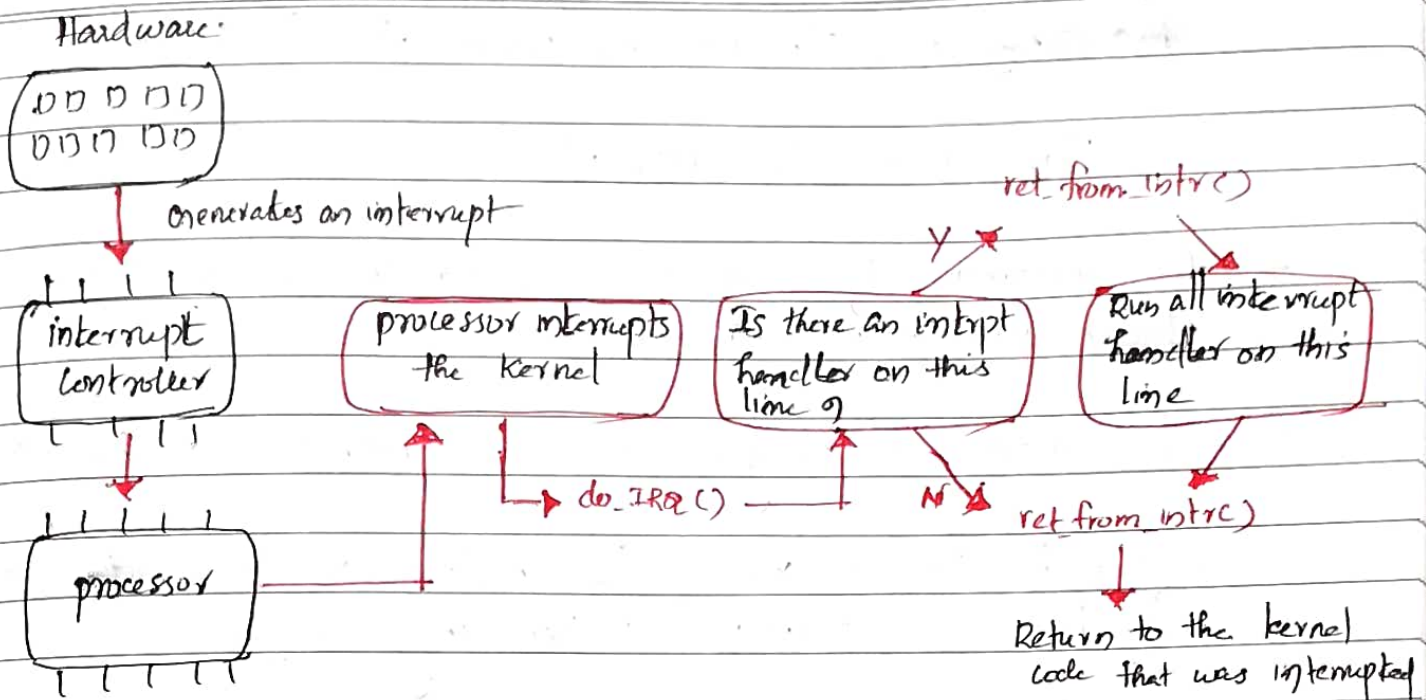 Hardware.
Generates an interrupt
interrupt
controller
processor
processor interrupts
the kernel
do_IRQ()
Is there an intrpt
handler on this
line ?
Y
N
ret_from_intr()
Run all interrupt
handler on this
line
ret_from_intr()
Return to the kernel
code that was interrupted